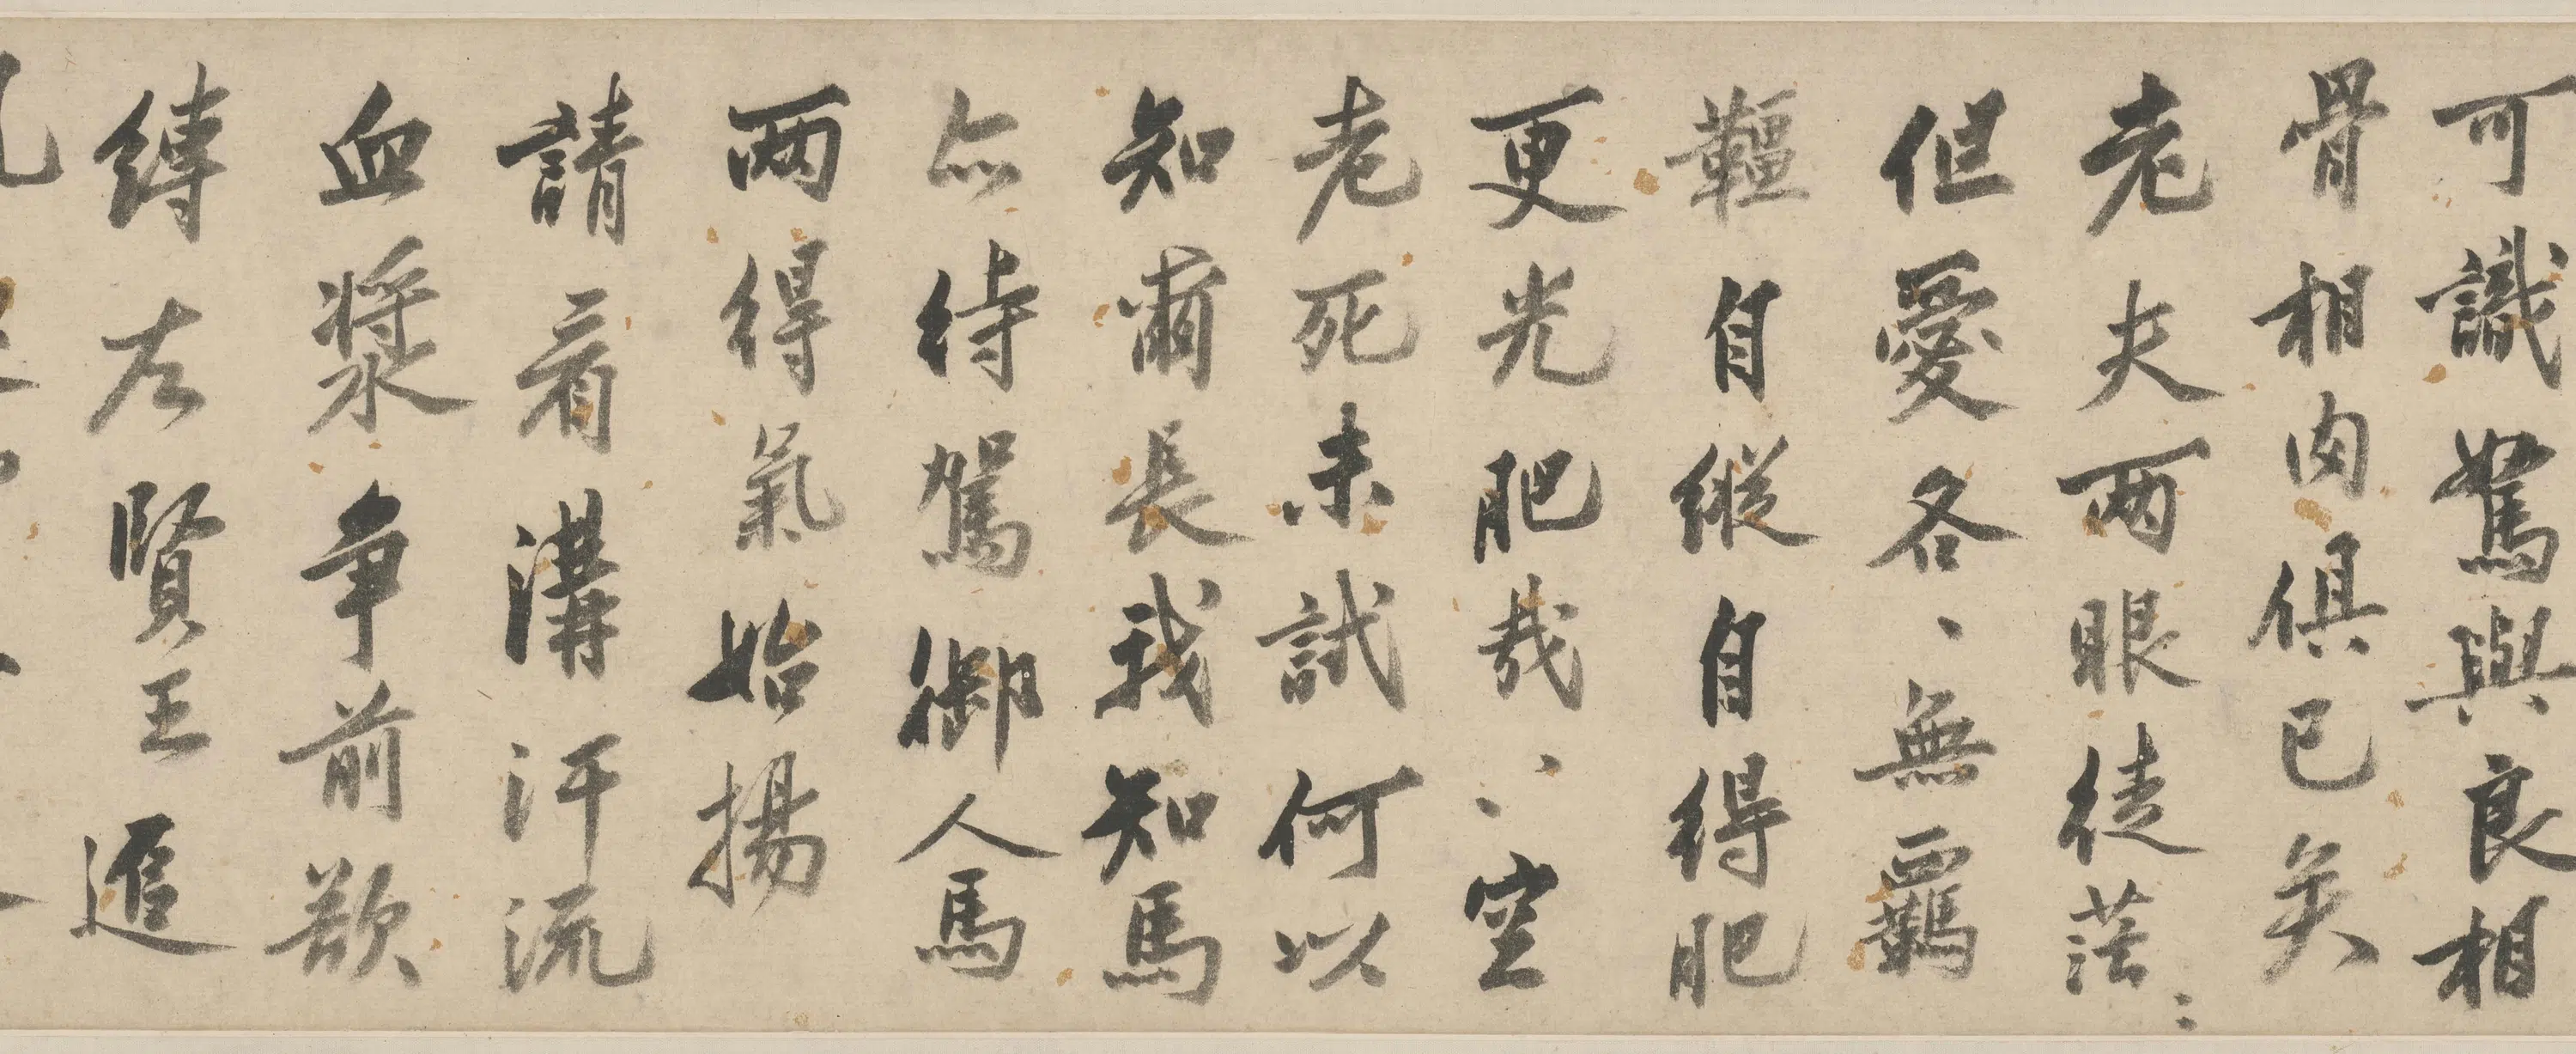 可識駑與良相
骨相肉俱已矣
老夫兩眼徒茫〻
但愛各〻無羈
韁自縱自得肥
更光肥哉〻〻空
老死未試何以
知爾長我知馬
亦待駕御人馬
兩得氣始揚
請看溝汗流
血漿争前欲
縛左賢王追